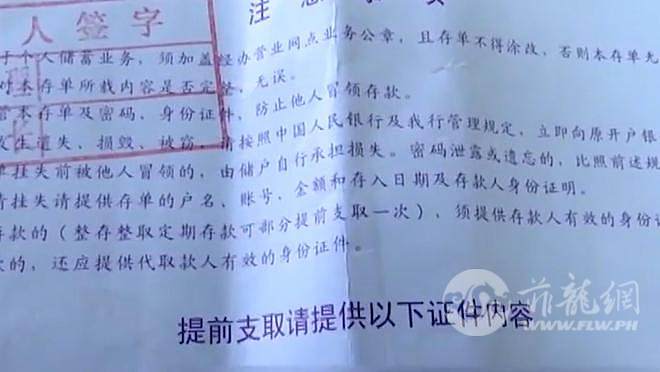 人签字
注意事项
于个人储蓄业务，须加盖经办营业网点业务公章，且存单不得涂改，否则本存单无
对本存单所载内容是否完整，无误。
管本存单及密码、身份证件，防止他人冒领存款。
发生遗失、损毁、被窃，请按照中国人民银行及我行管理规定，立即向原开户银
挂失前被他人冒领的，由储户自行承担损失。密码泄露或遗忘的，比照前述规
请挂失请提供存单的户名、账号、金额和存入日期及存款人身份证明。
存款的（整存整取定期存款可部分提前支取一次），须提供存款人有效的身份证
款的，还应提供代取款人有效的身份证件。
提前支取请提供以下证件内容
菲龍網
WWW.FLW.PH